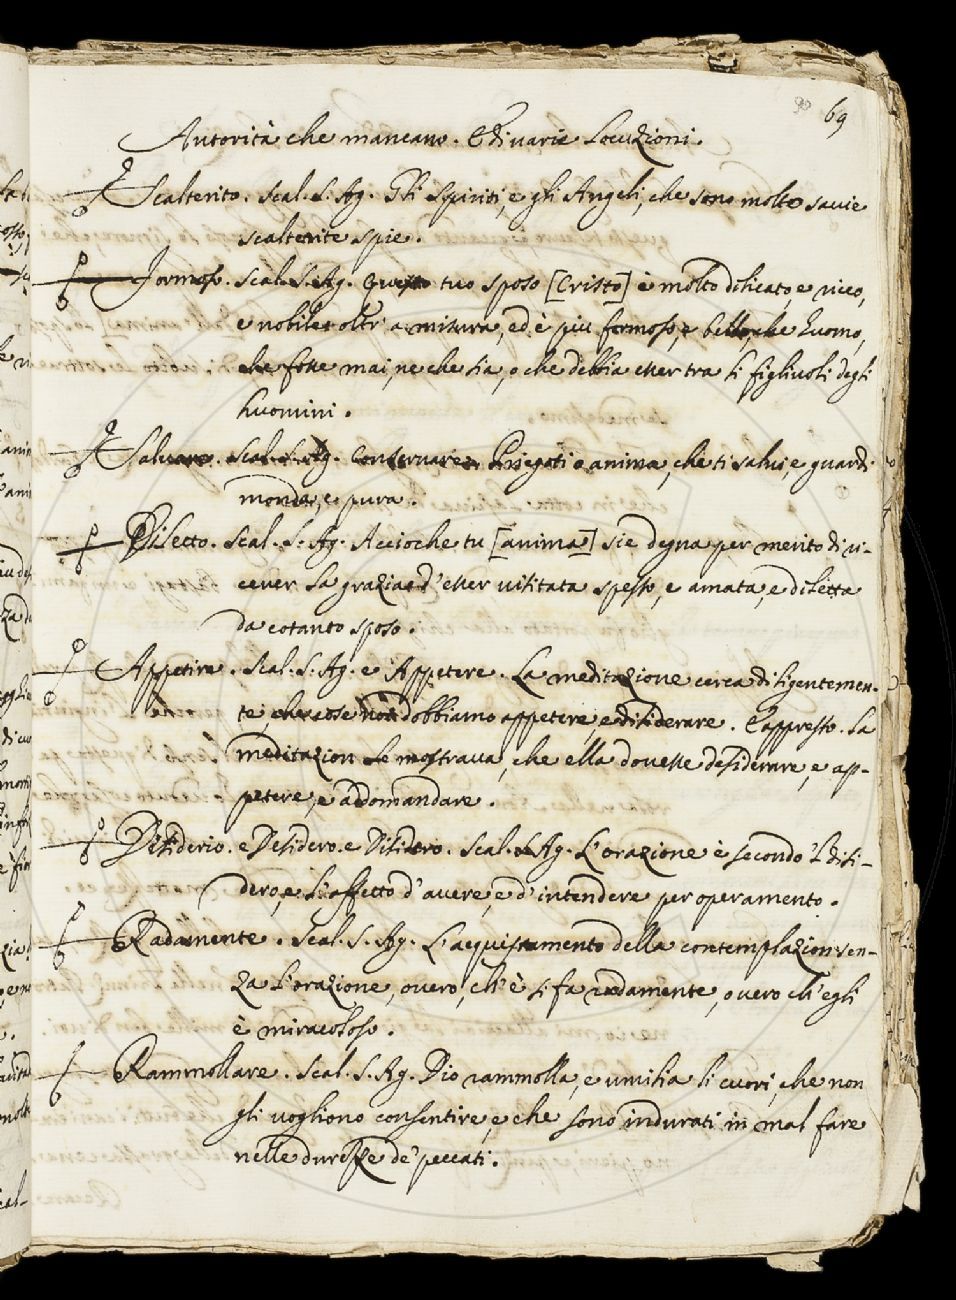 90 69
Autorità che mancano. E di varie Locuzioni.
Scalterito. Scal. S. Ag. Gli Spiriti, e gli Angeli, che sono molto savie
scalterite spie.
Formoso. Scal. S. Ag. Questo tuo sposo [Cristo] è molto dilicato, e ricco,
e nobile oltr' a misura, ed è piu formoso, e bello, che huomo,
che fosse mai, ne che sia, o che debbia esser tra li figliuoli degli
huomini.
Salvare. Scal. S. Ag. Conservare. Priegati o anima, che ti salvi, e guardi
monda, e pura.
Diletto. Scal. S. Ag. Accioche tu [anima] sie degna per merito di ri-
cever la grazia, e d'esser visitata spesso, e amata, e diletta
da cotanto sposo.
Appetire. Scal. S. Ag. e Appetere. La meditazione cerca diligentemen-
te che cose noi dobbiamo appetere, e disiderare. E appresso. La
meditazion le mostrava, che ella dovesse desiderare, e ap-
petere, e addomandare.
Disiderio. e Desidero. e Disidero. Scal. S. Ag. L'orazione è secondo 'l disi-
dero, e l'affetto d'avere, e d'intendere per operamento.
Radamente. Scal. S. Ag. L'acquistamento della contemplazion sen-
za l'orazione, overo, ch'è si fa radamente, overo ch'egli
è miracoloso.
Rammollare. Scal. S. Ag. Dio rammolla, e umilia li cuori, che non
gli vogliono consentire, e che sono indurati in mal fare
nelle durezze de' peccati.